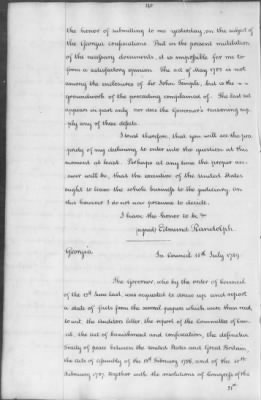 the honor of submitting to me yesterday, on the subject of
the Georgia confiscations. But in the present mutilation
of the necessary documents, it is impossible for me to
form a satisfactory opinion. The act of May 1782 is not
among the enclosures of Sir John Temple, but is the
groundwork of the proceeding complained of. The last act
appears in part only nor does the Governor's reasoning sup-
ply any of these defects.
I trust therefore, that you will see the pro-
priety of my declining to enter into the question at this
moment at least. Perhaps at any time the proper an-
swer will be, that the executive of the United States
ought to leave the whole business to the judiciary, on
this however I do not now presume to decide.
I have the honor to be &c
(signed) Edmund Randolph.
Georgia
In Council 15th July 1789.
The Governor, who by the order of Council
of the 13th June last, was requested to draw up and report
a state of facts from the several papers which were then read,
to wit, the auditors letter, the report of the Committee of Coun-
cil, the act of banishment and confiscation, the definitive
Treaty of peace between the United States and Great Britain,
the acts of assembly of the 13th February 1786, and of the 10th
February 1787, together with the resolutions of Congress of the
21st